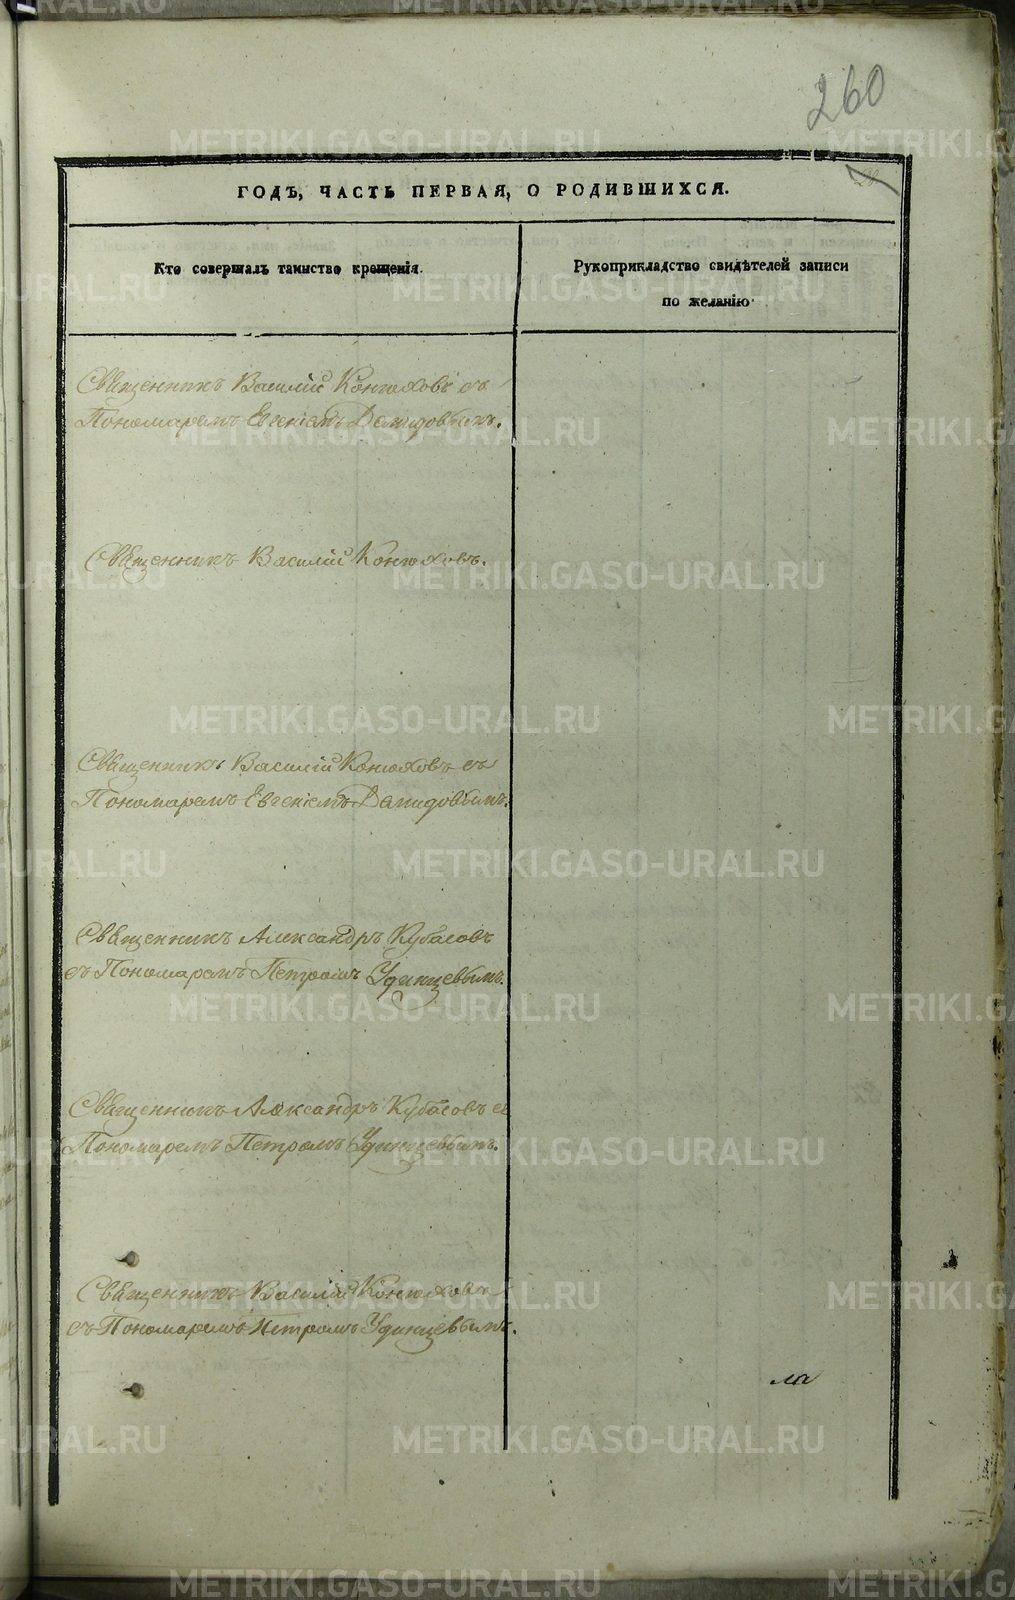 260
ГОДЪ, ЧАСТЬ ПЕРВАЯ, О РОДИВШИХСЯ.
Кто совершалъ таинство крещенія.
Рукоприкладство свидѣтелей записи
по желанію
Священникъ Василій Конюховъ съ
Пономаремъ Евгеніемъ Демидовымъ.
Священникъ Василій Конюховъ.
Священникъ Василій Конюховъ съ
Пономаремъ Евгеніемъ Демидовымъ.
Священникъ Александръ Кубасовъ
съ Пономаремъ Петромъ Удинцевымъ.
Священникъ Александръ Кубасовъ съ
Пономаремъ Петромъ Удинцевымъ.
Священникъ Василій Конюховъ
съ Пономаремъ Петромъ Удинцевымъ.
METRIKI.GASO-URAL.RU